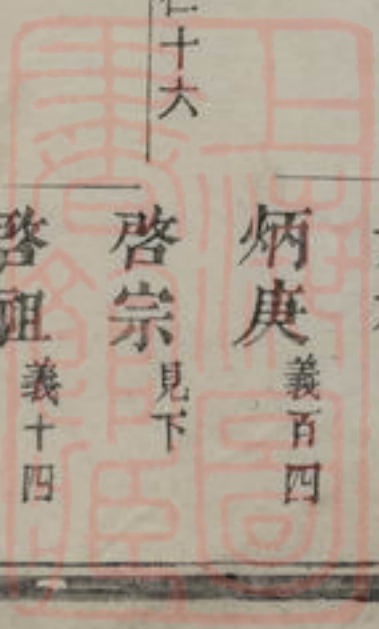 炳庚 義百四
十六
啓宗 見下
啓祖 義十四